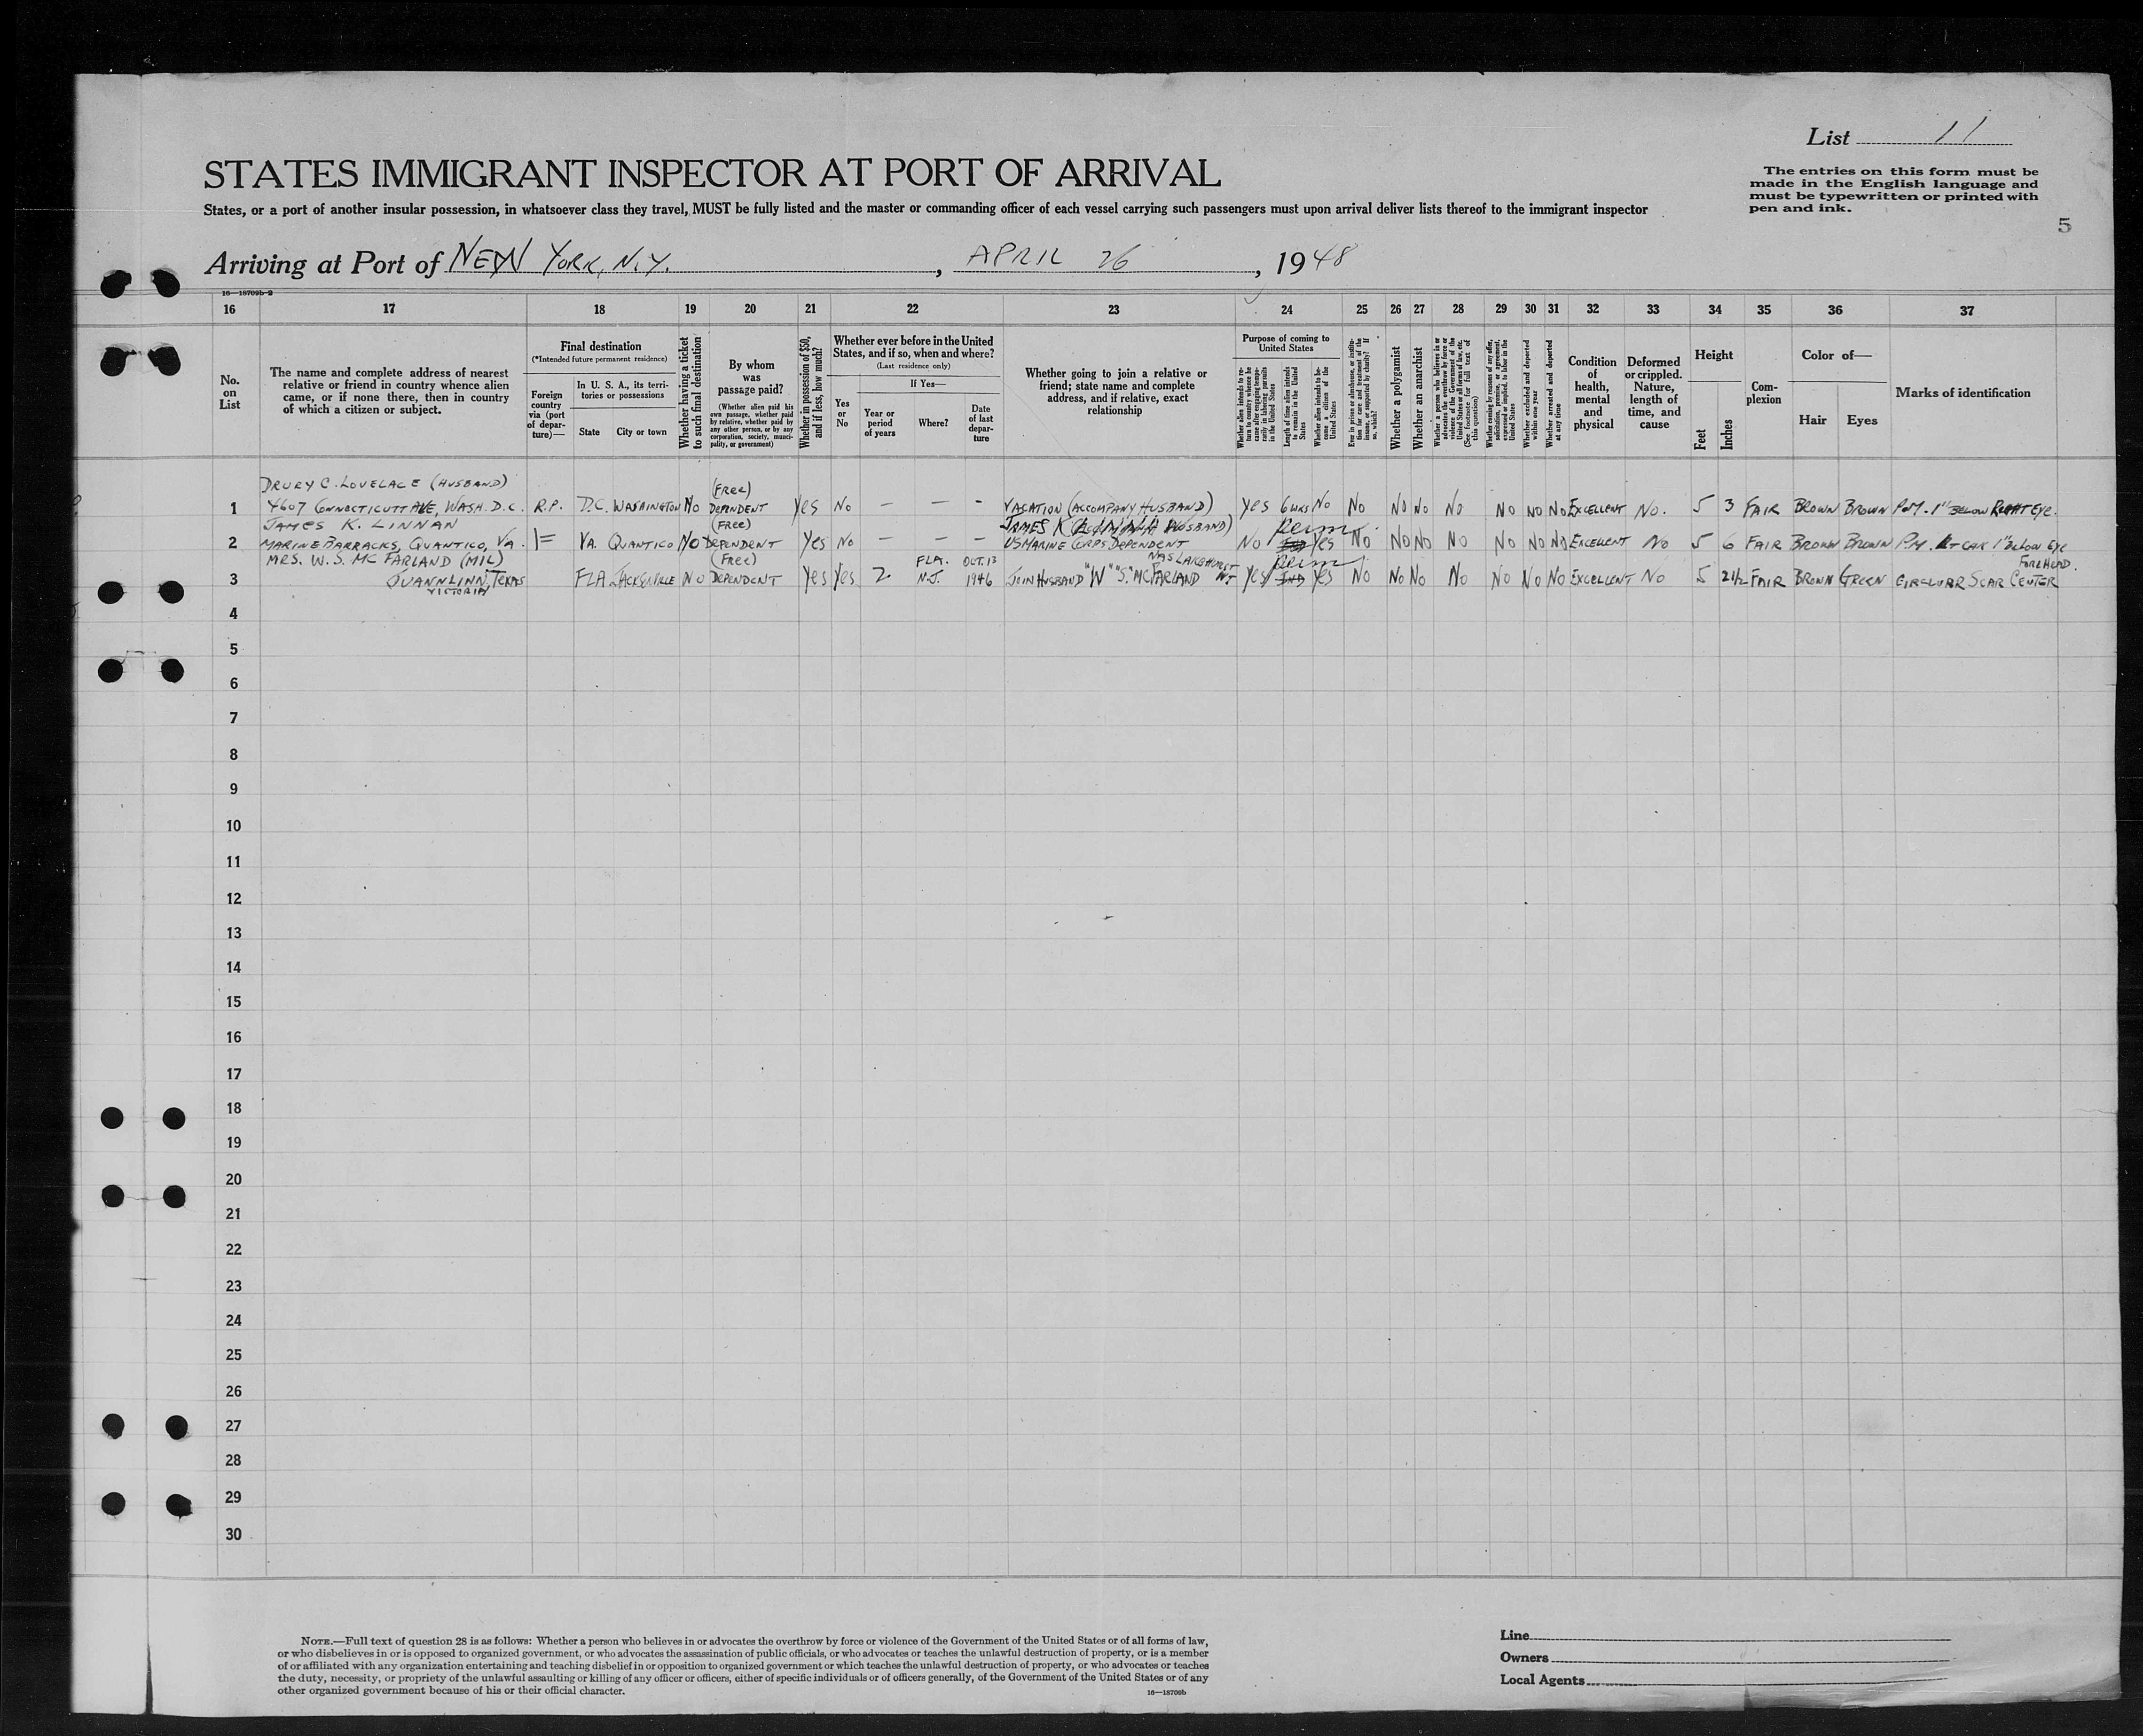 List 11
STATES IMMIGRANT INSPECTOR AT PORT OF ARRIVAL
The entries on this form must be
made in the English language and
must be typewritten or printed with
pen and ink.
States, or a port of another insular possession, in whatsoever class they travel, MUST be fully listed and the master or commanding officer of each vessel carrying such passengers must upon arrival deliver lists thereof to the immigrant inspector
5
Arriving at Port of NEW YORK, N.Y., APRIL 26, 1948
16—18709b-2
16 17 18 19 20 21 22 23 24 25 26 27 28 29 30 31 32 33 34 35 36 37
No.
on
List
The name and complete address of nearest
relative or friend in country whence alien
came, or if none there, then in country
of which a citizen or subject.
Final destination
(*Intended future permanent residence)
Foreign
country
via (port
of depar-
ture)—
In U. S. A., its terri-
tories or possessions
State City or town
Whether having a ticket
to such final destination
By whom
was
passage paid?
(Whether alien paid his
own passage, whether paid
by relative, whether paid by
any other person, or by any
corporation, society, munici-
pality, or government)
Whether in possession of $50,
and if less, how much?
Whether ever before in the United
States, and if so, when and where?
(Last residence only)
Yes
or
No
If Yes—
Year or
period
of years
Where?
Date
of last
depar-
ture
Whether going to join a relative or
friend; state name and complete
address, and if relative, exact
relationship
Purpose of coming to
United States
Whether alien intends to re-
turn to country whence he
came after engaging tempo-
rarily in laboring pursuits
in the United States
Length of time alien intends
to remain in the United
States
Whether alien intends to be-
come a citizen of the
United States
Ever in prison or almshouse, or institu-
tion for care and treatment of the
insane, or supported by charity? If
so, which?
Whether a polygamist
Whether an anarchist
Whether a person who believes in or
advocates the overthrow by force or
violence of the Government of the
United States or all forms of law, etc.
(See footnote for full text of
this question)
Whether coming by reason of any offer,
solicitation, promise, or agreement,
expressed or implied, to labor in the
United States
Whether excluded and deported
within one year
Whether arrested and deported
at any time
Condition
of
health,
mental
and
physical
Deformed
or crippled.
Nature,
length of
time, and
cause
Height
Feet
Inches
Com-
plexion
Color of—
Hair Eyes
Marks of identification
DRURY C. LOVELACE (HUSBAND) (FREE)
1 4607 CONNECTICUTT AVE, WASH. D.C. R.P. D.C. WASHINGTON NO DEPENDENT YES NO — — — VACATION (ACCOMPANY HUSBAND) YES 6 WKS NO NO NO NO NO NO NO NO EXCELLENT NO. 5 3 FAIR BROWN BROWN P.M. 1" BELOW RIGHT EYE.
JAMES K. LINNAN (FREE) JAMES K HUSBAND) Perm.
2 MARINE BARRACKS, QUANTICO, VA. VA. QUANTICO NO DEPENDENT YES NO — — — US MARINE CORPS DEPENDENT NO YES NO NO NO NO NO NO NO EXCELLENT NO 5 6 FAIR BROWN BROWN P.M. 1" BELOW EYE
MRS. W. S. MC FARLAND (MIL) (FREE) FLA. OCT. 13 NAS LAKEHURST Perm FOREHEAD.
3 TEXAS FLA. JACKSNVILLE NO DEPENDENT YES YES 2 N.J. 1946 JOIN HUSBAND "W" "S." MCFARLAND NJ YES IND YES NO NO NO NO NO NO NO EXCELLENT NO 5 2 1/2 FAIR BROWN GREEN CIRCLUAR SCAR CENTER
VICTORIA
4
5
6
7
8
9
10
11
12
13
14
15
16
17
18
19
20
21
22
23
24
25
26
27
28
29
30
NOTE.—Full text of question 28 is as follows: Whether a person who believes in or advocates the overthrow by force or violence of the Government of the United States or of all forms of law,
or who disbelieves in or is opposed to organized government, or who advocates the assassination of public officials, or who advocates or teaches the unlawful destruction of property, or is a member
of or affiliated with any organization entertaining and teaching disbelief in or opposition to organized government or which teaches the unlawful destruction of property, or who advocates or teaches
the duty, necessity, or propriety of the unlawful assaulting or killing of any officer or officers, either of specific individuals or of officers generally, of the Government of the United States or of any
other organized government because of his or their official character.
16—18709b
Line
Owners
Local Agents